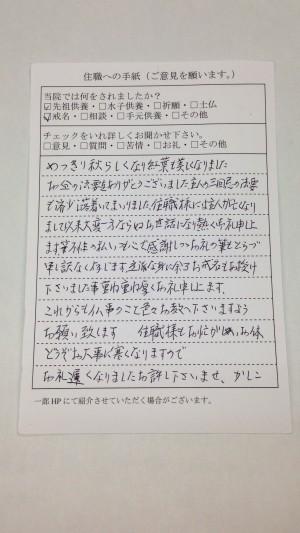 住職への手紙（ご意見を願います。）
当院では何をされましたか？
☑先祖供養・□水子供養・□祈願・□土仏
☑戒名・□相談・□手元供養・□その他
チェックをいれ詳しくお聞かせ下さい。
□意見・□質問・□苦情・□お礼・□その他
めっきり秋らしくなり紅葉も美になりました
お会の法要ありがとうございました主人の三回忌の法要
も済み落着いてまいりました。住職様には主人が亡くなり
まして以来大変一方ならぬお世話になり熱く御礼申上
ます。第三信の払い 心して感謝しつつお礼の筆をとらづ
申し訳なく存じます。立派な身に余るお戒名もお授け
下さいました事重ね重ね厚くお礼申し上ます。
これからも仏事のこと色々お教へ下さいますよう
お願い致します 住職様もお忙がしいお体
どうぞお大事に寒くなりますので
お礼遅くなりましたお許し下さいませ、かしこ
一部HPにて紹介させていただく場合がございます。